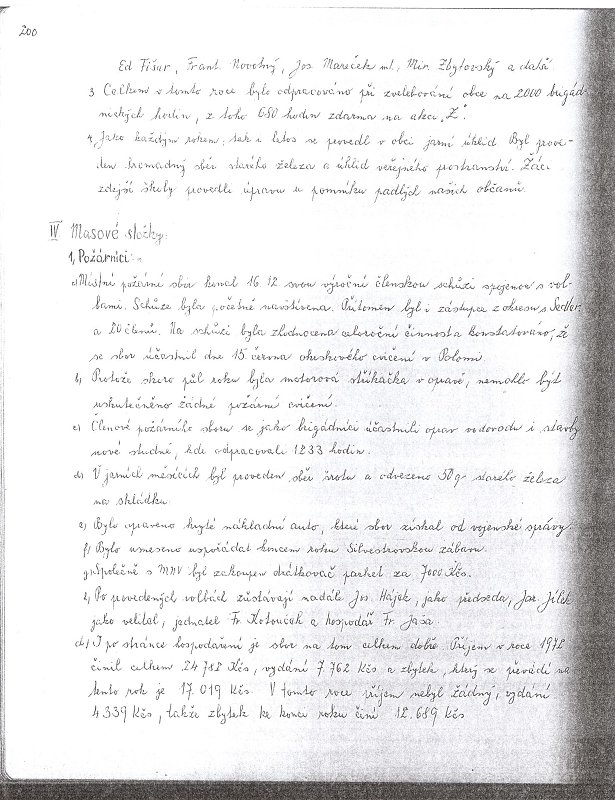 200
Ed Fišar, Frant. Novotný, Jos. Mareček ml., Mir. Zbytovský a další
3 Celkem v tomto roce bylo odpracováno při zvelebování obce na 2000 brigád-
nických hodin, z toho 680 hodin zdarma na akci „Z“.
4, Jako každým rokem, tak i letos se provedl v obci jarní úklid Byl prove-
den hromadný sběr starého železa a úklid veřejného prostranství. Žáci
zdejší školy provedli úpravu u pomníku padlých našich občanů.
IV Masové složky.
1, Požárníci:
a) Místní požární sbor konal 16. 12. svou výroční členskou schůzi spojenou s vol-
bami. Schůze byla početně navštívena. Přítomen byl i zástupce z okresu s.
a 20 členů. Na schůzi byla zhodnocena celoroční činnost a konstatováno, že
se sbor účastnil dne 15 června okrskového cvičení v Polomi.
b) Protože skoro půl roku byla motorová stříkačka v opravě, nemohlo být
uskutečněno žádné požární cvičení.
c) Členové požárního sboru se jako brigádníci účastnili oprav vodovodu i stavby
nové studně, kde odpracovali 1233 hodin.
d) V jarních měsících byl proveden sběr šrotu a odvezeno 50 q starého železa
na skládku.
e) Bylo upraveno kryté nákladní auto, které sbor získal od vojenské správy
f) Bylo usneseno uspořádat koncem roku Silvestrovskou zábavu.
g) Společně s MNV byl zakoupen drátkovač parket za 7000 Kčs.
Po provedených volbách zůstávají nadále Jos. Hájek, jako předseda, Jar. Jílek
jako velitel, jednatel Fr. Kotouček a hospodář Fr. Jaša.
I po stránce hospodaření je sbor na tom celkem dobře. Příjem v roce 1972
činil celkem 24 782 Kčs, vydání 7.762 Kčs a zbytek, který se převádí na
tento rok je 17.019 Kčs. V tomto roce příjem nebyl žádný, vydání
4 339 Kčs, takže zbytek ke konci roku činí 12.689 Kčs